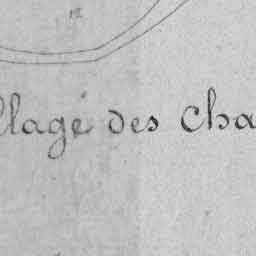 12
llage des cha